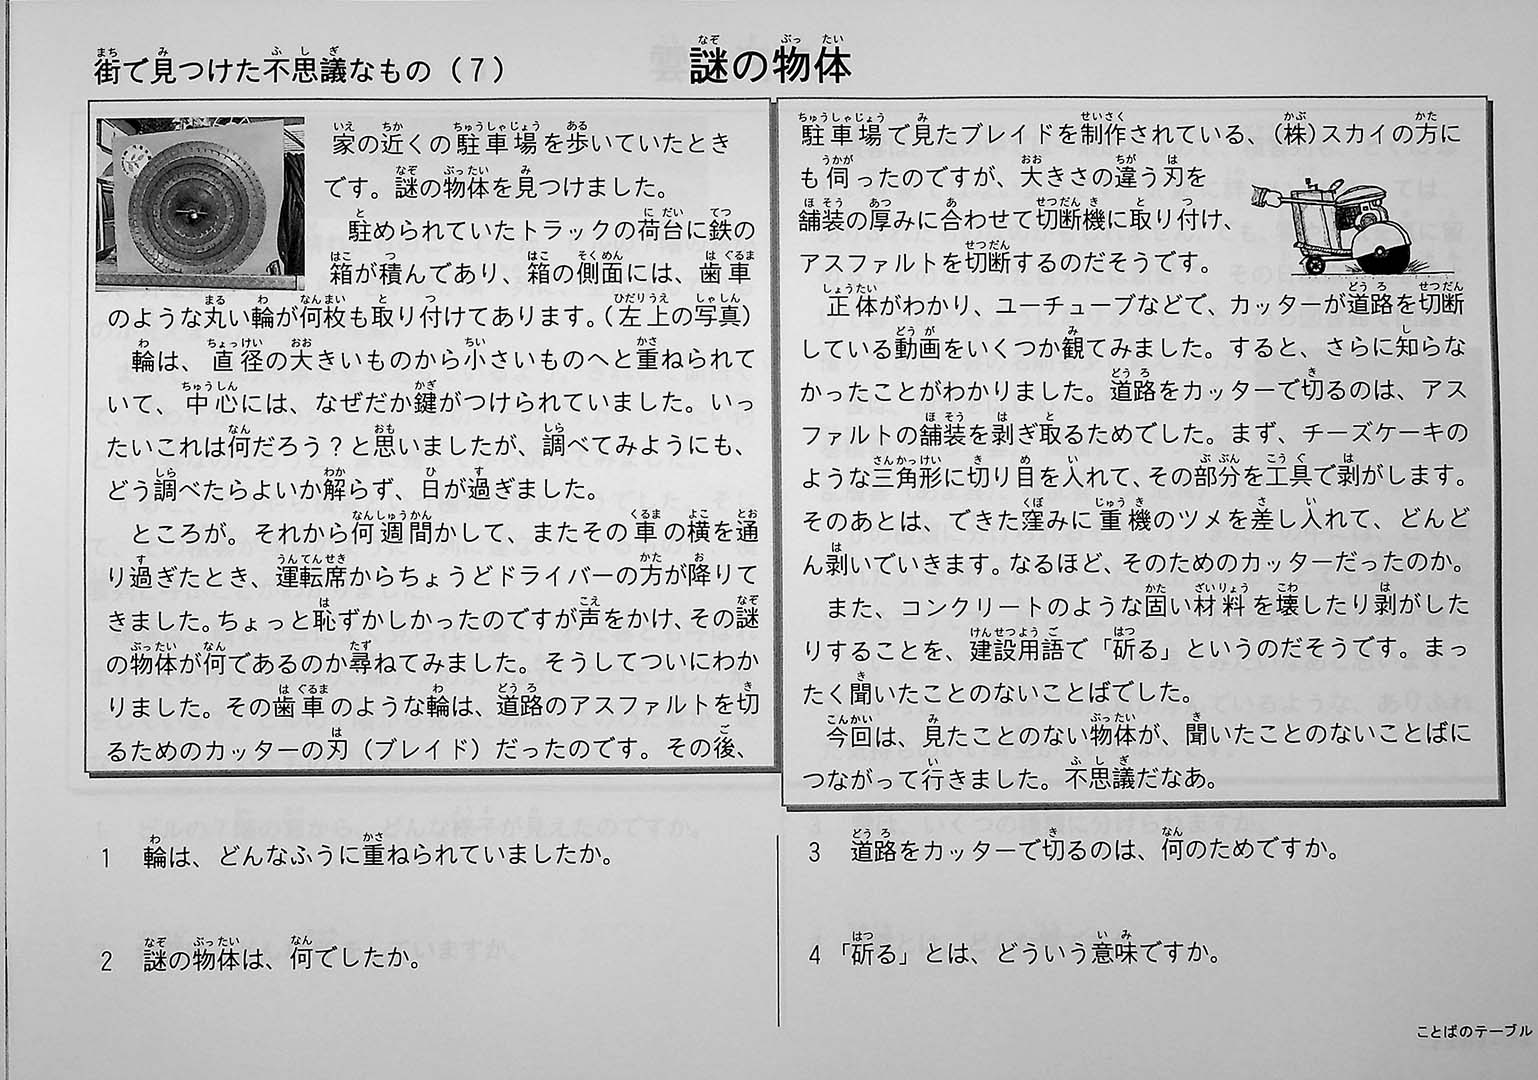 街で見つけた不思議なもの（７）
謎の物体
家の近くの駐車場を歩いていたとき
です。謎の物体を見つけました。
駐められていたトラックの荷台に鉄の
箱が積んであり、箱の側面には、歯車
のような丸い輪が何枚も取り付けてあります。（左上の写真）
輪は、直径の大きいものから小さいものへと重ねられて
いて、中心には、なぜだか鍵がつけられていました。いっ
たいこれは何だろう？と思いましたが、調べてみようにも、
どう調べたらよいか解らず、日が過ぎました。
ところが。それから何週間かして、またその車の横を通
り過ぎたとき、運転席からちょうどドライバーの方が降りて
きました。ちょっと恥ずかしかったのですが声をかけ、その謎
の物体が何であるのか尋ねてみました。そうしてついにわか
りました。その歯車のような輪は、道路のアスファルトを切
るためのカッターの刃（ブレイド）だったのです。その後、
駐車場で見たブレイドを制作されている、（株）スカイの方に
も伺ったのですが、大きさの違う刃を
舗装の厚みに合わせて切断機に取り付け、
アスファルトを切断するのだそうです。
正体がわかり、ユーチューブなどで、カッターが道路を切断
している動画をいくつか観てみました。すると、さらに知らな
かったことがわかりました。道路をカッターで切るのは、アス
ファルトの舗装を剥ぎ取るためでした。まず、チーズケーキの
ような三角形に切り目を入れて、その部分を工具で剥がします。
そのあとは、できた窪みに重機のツメを差し入れて、どんど
ん剥いでいきます。なるほど、そのためのカッターだったのか。
また、コンクリートのような固い材料を壊したり剥がした
りすることを、建設用語で「斫る」というのだそうです。まっ
たく聞いたことのないことばでした。
今回は、見たことのない物体が、聞いたことのないことばに
つながって行きました。不思議だなあ。
1　輪は、どんなふうに重ねられていましたか。
2　謎の物体は、何でしたか。
3　道路をカッターで切るのは、何のためですか。
4「斫る」とは、どういう意味ですか。
ことばのテーブル